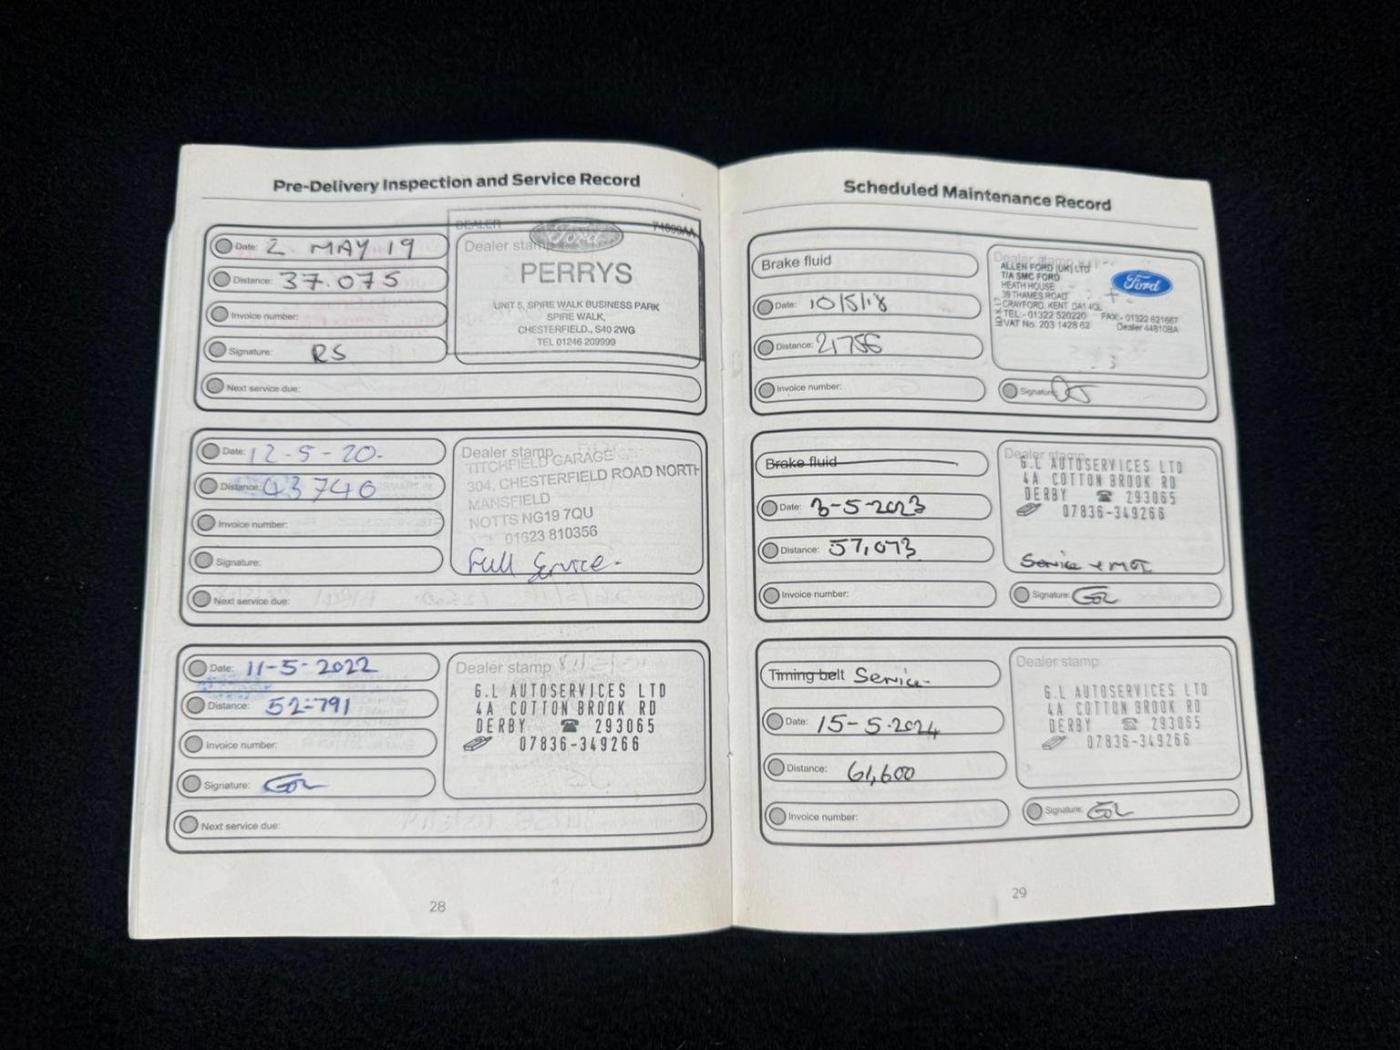 Pre-Delivery Inspection and Service Record
Date: 2 MAY 19
Distance: 37.075
Invoice number:
Signature: RS
Next service due:
DEALER
Ford
Dealer stamp
PERRYS
UNIT 5, SPIRE WALK BUSINESS PARK
SPIRE WALK,
CHESTERFIELD., S40 2WG
TEL 01246 209999
Date: 12-5-20.
Distance: 43740
Invoice number:
Signature:
Next service due:
Dealer stamp
TITCHFIELD GARAGE
304, CHESTERFIELD ROAD NORTH
MANSFIELD
NOTTS NG19 7QU
01623 810356
Full Service.
Date: 11-5-2022
Distance: 52-791
Invoice number:
Signature:
Next service due:
Dealer stamp
G.L AUTOSERVICES LTD
4A COTTON BROOK RD
DERBY ☎ 293065
07836-349266
28
Scheduled Maintenance Record
Brake fluid
Date: 10/5/18
Distance: 21756
Invoice number:
Dealer stamp
ALLEN FORD (UK) LTD
T/A SMC FORD
HEATH HOUSE
39 THAMES ROAD
CRAYFORD, KENT DA1 4QL
TEL - 01322 520220 FAX - 01322 621667
VAT No. 203 1428 62 Dealer 44810BA
Ford
Signature:
Brake fluid
Date: 3-5-2023
Distance: 57,073
Invoice number:
Dealer stamp
G.L AUTOSERVICES LTD
4A COTTON BROOK RD
DERBY ☎ 293065
07836-349266
Service + MOT
Signature:
Timing belt Service
Date: 15-5-2024
Distance: 61,600
Invoice number:
Dealer stamp
G.L AUTOSERVICES LTD
4A COTTON BROOK RD
DERBY ☎ 293065
07836-349266
Signature:
29